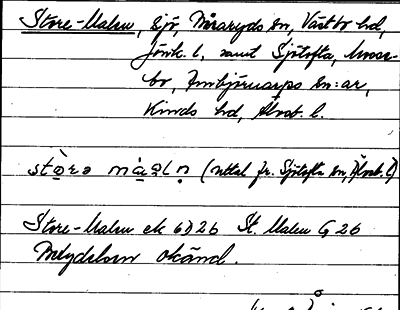 Store-Malen, sjö, Våraryds sn, Västbo hd,
Jönk. l, samt Sjötofta,
bo, Ambjörnarps sn:ar,
Kinds hd, Älvsb. l.
stò̱rə má̱a̱ln̥ (uttal fr. Sjötofta sn, Älvsb. l)
Store-Malen ek 6D26 St. Malen G 26
Betydelsen okänd.